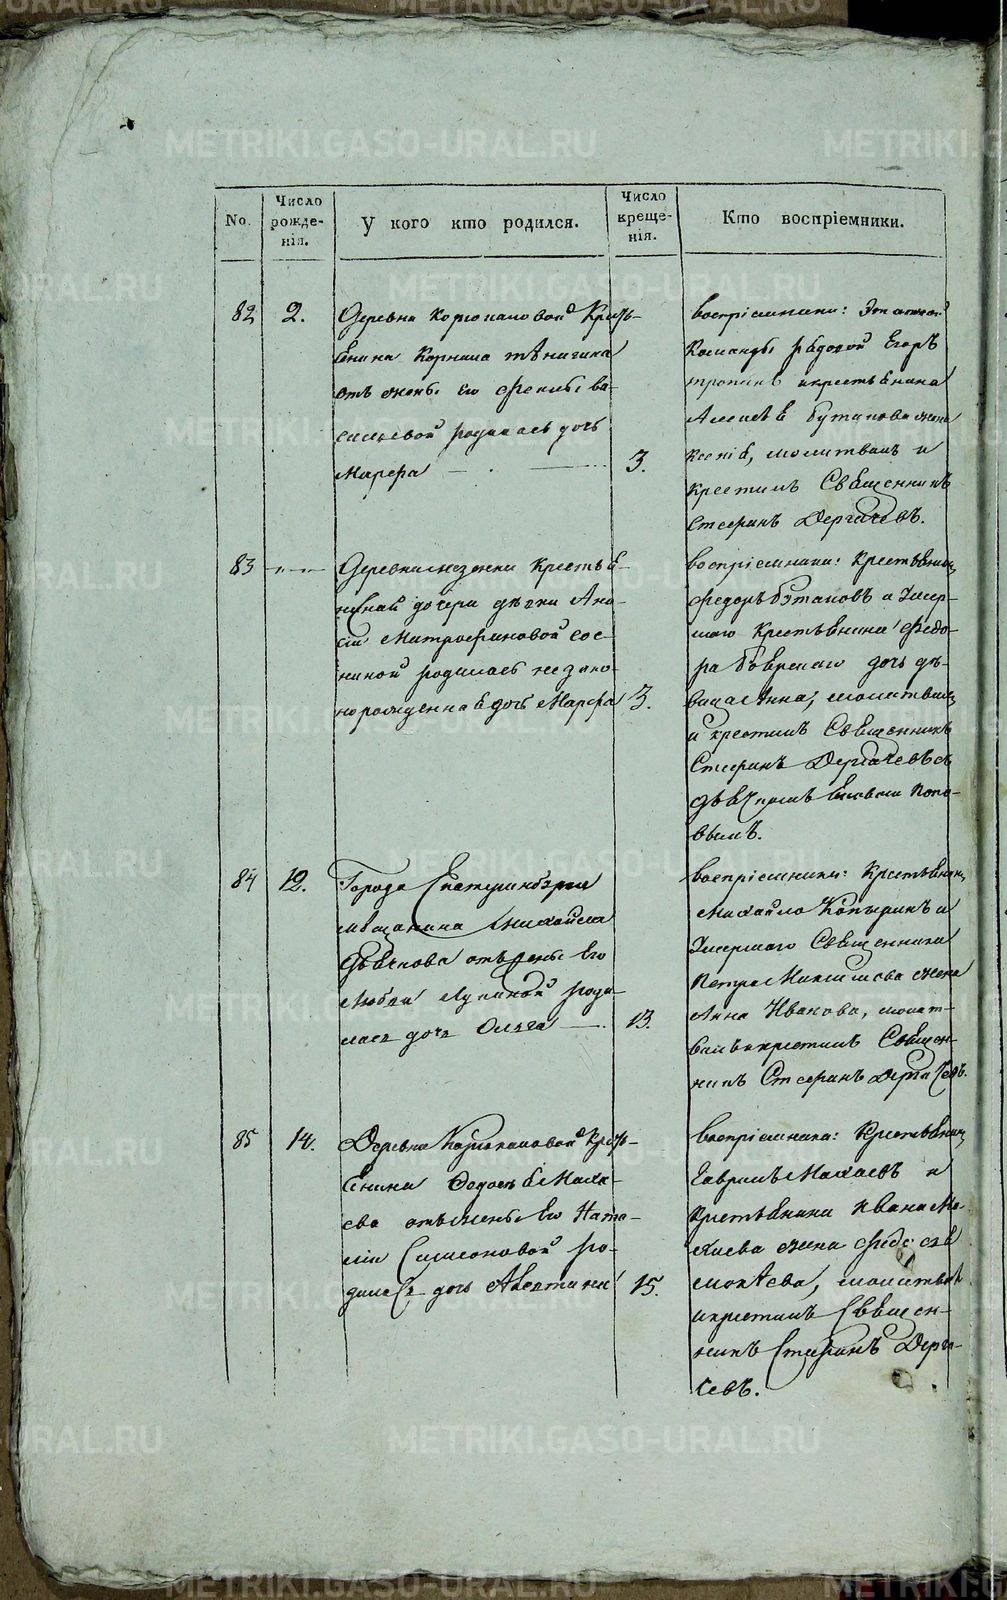 METRIKI.GASO-URAL.RU
No.
Число рожде-нія.
У кого кто родился.
Число креще-нія.
Кто воспріемники.
82
2.
Деревни Корюкаловой Кресть-
янина Корнила
отъ жены его Феклы Ва-
сильевой родилась дочь
Марфа
3.
воспріемники: Этапной
Команды рядовой Егоръ
и крестьянина
Алексѣя Бутакова жена
Ксенія, молитвилъ и
крестилъ Священникъ
Стефанъ Дергачевъ.
83
-"-
Деревни крестья-
нской дочери дѣвки
Митрофановой Сос-
ниной родилась незако-
норожденная дочь Марфа
3.
воспріемники: Крестьянинъ
Федоръ Бутаковъ и Умер-
шаго Крестьянина Федо-
ра дочь дѣ-
вица Анна, молитвилъ
и крестилъ Священникъ
Стефанъ Дергачевъ съ
дьячкомъ Попо-
вымъ.
84
12.
Города Екатеринбурга
мѣщанина Михайла
Дьячкова отъ жены его
Любви родилась
лась дочь Ольга
13.
воспріемники: Крестьянинъ
Михайло Копыринъ и
Умершаго Священника
Петра жена
Анна Иванова, молит-
вилъ и крестилъ Священ-
никъ Стефанъ Дергачевъ.
85
14.
Деревни Корюкаловой Кресть-
янина Федосѣя Маха-
ева отъ жены его Ната-
ліи Симеоновой ро-
дилась дочь
15.
воспріемники: Крестьянинъ
Гаврилъ Махаевъ и
крестьянина Ивана Ма-
хаева жена
молитвилъ
и крестилъ Священ-
никъ Стефанъ Дерга-
чевъ.